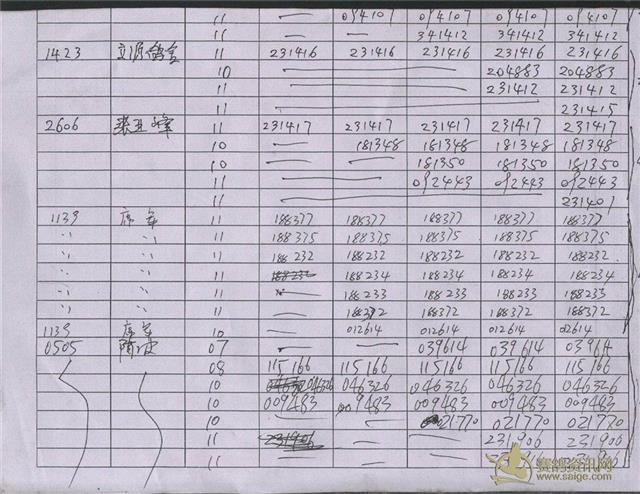 11 — 094107 094107 094107
11 341412 341412 341412
1423 11 231416 231416 231416 231416 231416
10 — 204883 204883
11 — 231412 231412
11 — 231415
2606 11 231417 231417 231417 231417 231417
10 — 181348 181348 181348 181348
10 — — 181350 181350 181350
11 — — 092443 092443 092443
11 — — — — 231401
1139 11 188377 188377 188377 188377 188377
〃 〃 11 188375 188375 188375 188375 188375
〃 〃 11 188232 188232 188232 188232 188232
〃 〃 11 188234 188234 188234 188234
〃 〃 11 — 188233 188233 188233 188233
〃 〃 11 188372 188372 188372
1139 10 — 012614 012614 012614 012614
0505 07 — — 039614 039614 03961
08 115166 115166 115166 115166 115166
10 046326 046326 046326 046326 046326
10 009483 009483 009483 009483 009483
10 — — 021770 021770 021770
11 — — 231906 231906
11 — — —
赛鸽资讯网
www.saige.com